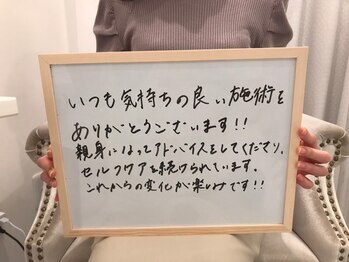 いつも気持ちの良い施術を
ありがとうございます!!
親身になってアドバイスをしてくださり、
セルフケアを続けられています。
これからの変化が楽しみです!!